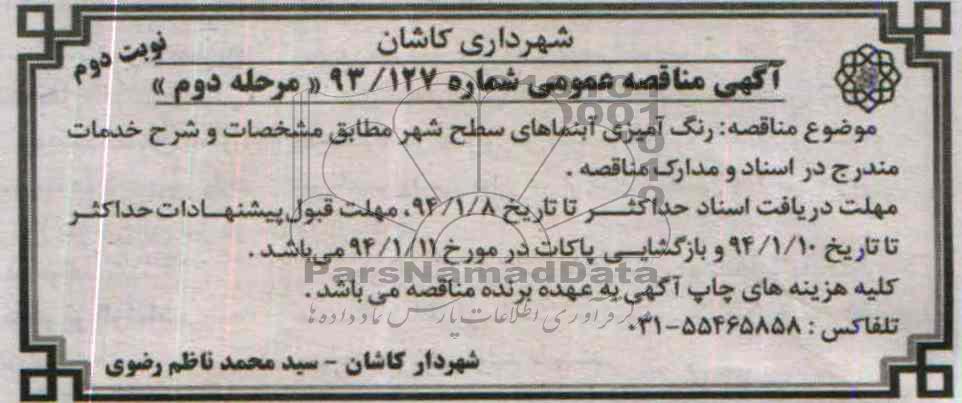 شهرداری کاشان
نوبت دوم
آگهی مناقصه عمومی شماره ۹۳/۱۲۷ « مرحله دوم »
موضوع مناقصه: رنگ آمیزی آبنماهای سطح شهر مطابق مشخصات و شرح خدمات
مندرج در اسناد و مدارک مناقصه .
مهلت دریافت اسناد حداکثر تا تاریخ ۹۴/۱/۸، مهلت قبول پیشنهادات حداکثر
تا تاریخ ۹۴/۱/۱۰ و بازگشایی پاکات در مورخ ۹۴/۱/۱۱ می‌باشد .
ParsNamadData
کلیه هزینه های چاپ آگهی به عهده برنده مناقصه می باشد .
تلفاکس : ۵۵۴۶۵۸۵۸-۰۳۱
شهردار کاشان - سید محمد ناظم رضوی